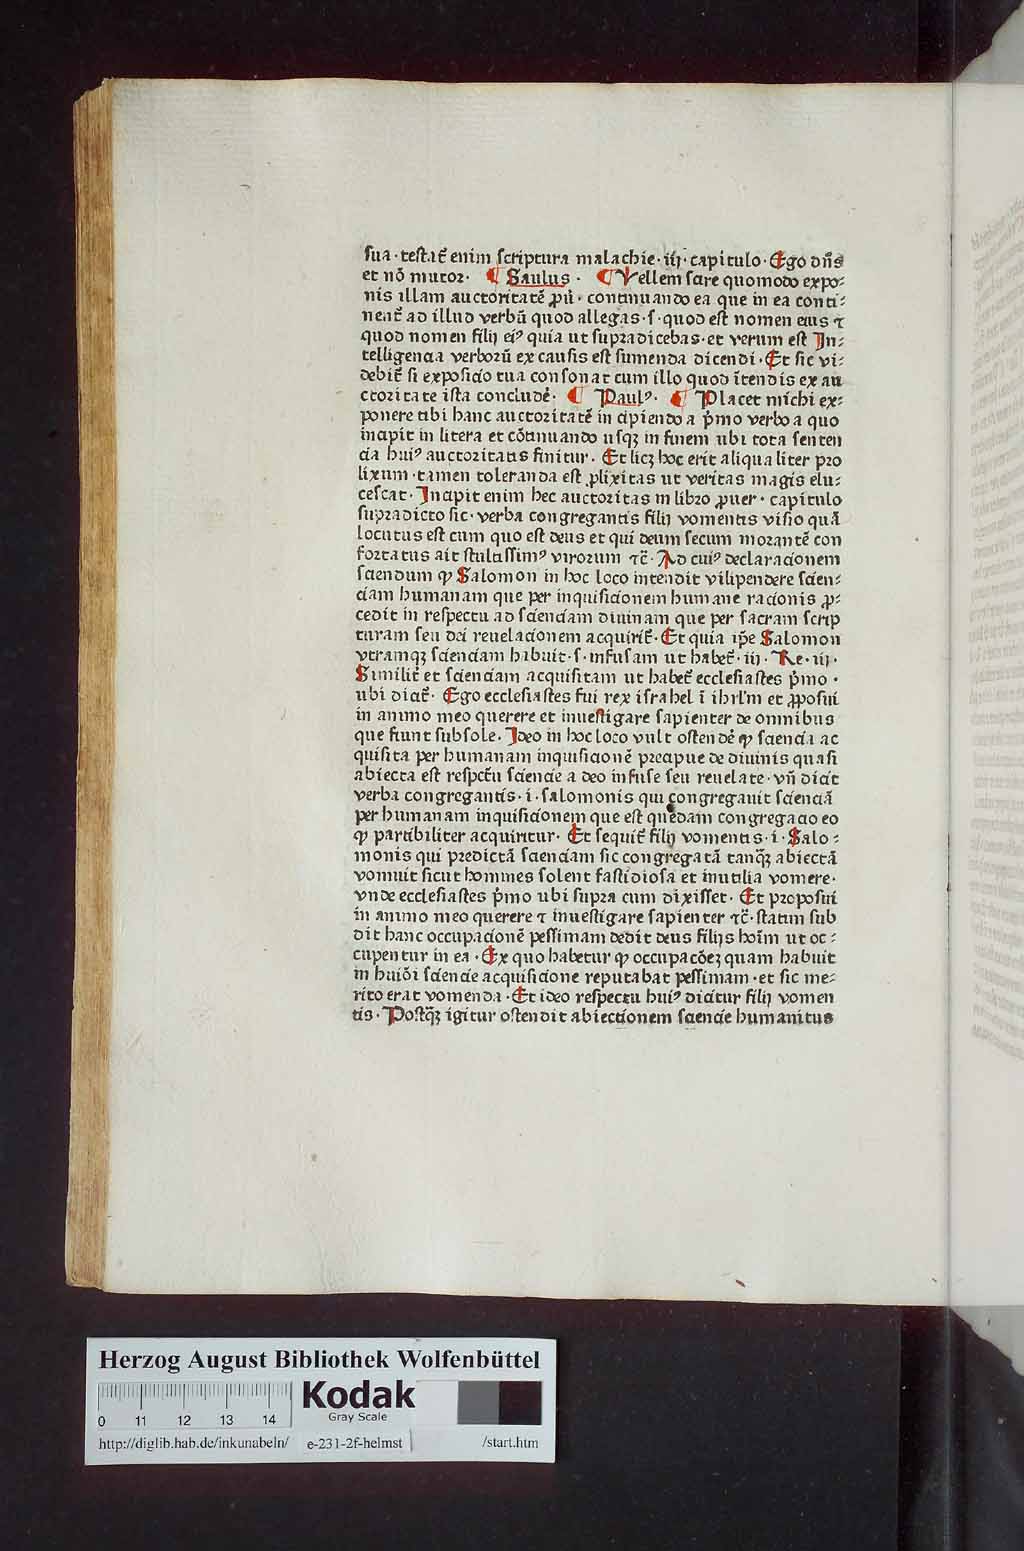 sua · testat̄ enim scriptura malachie · iij · capitulo · Ego dn̄s
et nō mutor · ¶ Saulus · ¶ Vellem scire quomodo expo⸗
nis illam auctoritatē ꝓu̇ · continuando ea que in ea conti⸗
nent̄ ad illud verbū quod allegas · s · quod est nomen eius ⁊
quod nomen filij ei⁹ quia ut supradicebas · et verum est In⸗
telligencia verborū ex causis est sumenda dicendi · Et sic vi⸗
debit̄ si exposicio tua consonat cum illo quod ītendis ex au
ctoritate ista concludē · ¶ Paul⁹ · ¶ Placet michi ex⸗
ponere tibi hanc auctoritatē incipiendo a p̄mo verbo a quo
incipit in litera et cōtinuando usqꝫ in finem ubi tota senten
cia hui⁹ auctoritatis finitur · Et licꝫ hoc erit aliqualiter pro
lixum · tamen toleranda est ꝓlixitas ut veritas magis elu⸗
cescat · Incipit enim hec auctoritas in libro ꝓuer · capitulo
supradicto sic · verba congregantis filij vomentis visio quā
locutus est cum quo est deus et qui deum secum morantē con
fortatus ait stultissim⁹ virorum ⁊c̄ · Ad cui⁹ declaracionem
sciendum ꝙ Salomon in hoc loco intendit vilipendere scien⸗
ciam humanam que per inquisicionem humane racionis ꝓ⸗
cedit in respectu ad scienciam diuinam que per sacram scrip
turam seu dei reuelacionem acquirit̄ · Et quia ip̄e Salomon
vtramqꝫ scienciam habuit · s · infusam ut habet̄ · iij · Re · iij ·
Similit̄ et scienciam acquisitam ut habet̄ ecclesiastes p̄mo ·
ubi dicit̄ · Ego ecclesiastes fui rex israhel ī ihrl'm et ꝓposui
in animo meo querere et inuestigare sapienter de omnibus
que fiunt subsole · Ideo in hoc loco vult ostendē ꝙ sciencia ac
quisita per humanam inquisicionē precipue de diuinis quasi
abiecta est respctu sciencie a deo infuse seu reuelate · vn̄ dicit
verba congregantis · i · salomonis qui congregauit scienciā
per humanam inquisicionem que est quedam congregacio eo
ꝙ partibiliter acquiritur · Et sequit̄ filij vomentis · i · Salo⸗
monis qui predictā scienciam sic congregatā tanqꝫ̄ abiectā
vomuit sicut homines solent fastidiosa et inutilia vomere ·
vnde ecclesiastes p̄mo ubi supra cum dixisset · Et proposui
in animo meo querere ⁊ inuestigare sapienter ⁊c̄ · statim sub
dit hanc occupacionē pessimam dedit deus filijs hoīm ut oc⸗
cupentur in ea · Ex quo habetur ꝙ occupacōeꝫ quam habuit
in huiōi sciencie acquisicione reputabat pessimam · et sic me⸗
rito erat vomenda · Et ideo respectu hui⁹ dicitur filij vomen
tis · Postqꝫ̄ igitur ostendit abiectionem sciencie humanitus
Herzog August Bibliothek Wolfenbüttel
Kodak
Gray Scale
0 11 12 13 14
http://diglib.hab.de/inkunabeln/ e-231-2f-helmst /start.htm